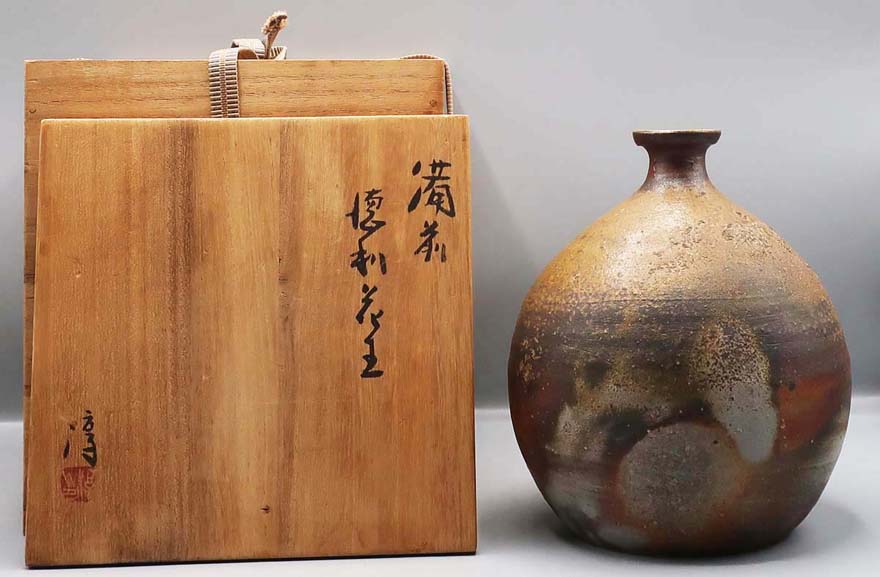 備前
徳利花生
淳